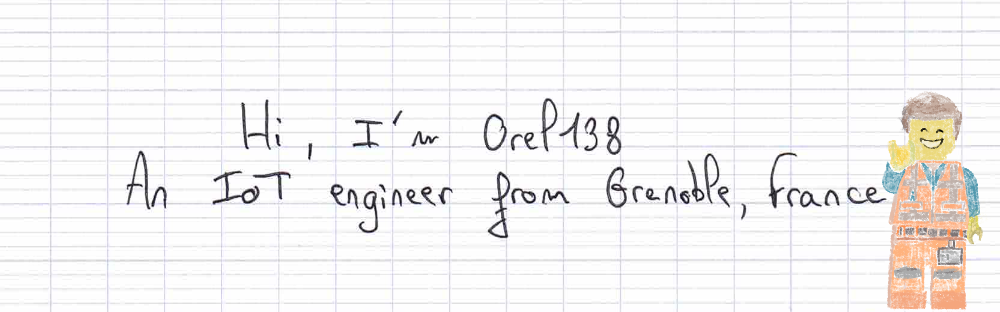 Hi, I'm Orel138
An IoT engineer from Grenoble, France